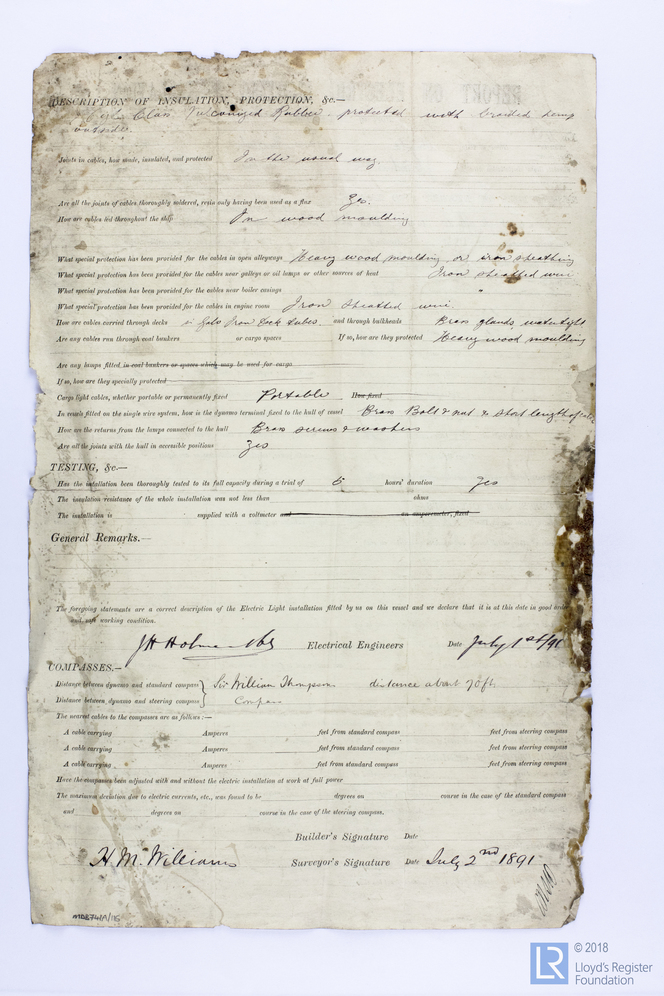 DESCRIPTION OF INSULATION, PROTECTION, &c.—
First Class Vulcanized Rubber protected with braided hemp
outside.
Joints in cables, how made, insulated, and protected In the usual way
Are all the joints of cables thoroughly soldered, resin only having been used as a flux Yes.
How are cables led throughout the ship In wood moulding
What special protection has been provided for the cables in open alleyways Heavy wood moulding or iron sheathing
What special protection has been provided for the cables near galleys or oil lamps or other sources of heat Iron sheathed wire
What special protection has been provided for the cables near boiler casings "
What special protection has been provided for the cables in engine room Iron sheathed wire.
How are cables carried through decks in Galv Iron Deck tubes and through bulkheads Brass glands, watertight
Are any cables run through coal bunkers or cargo spaces If so, how are they protected Heavy wood moulding
Are any lamps fitted in coal bunkers or spaces which may be used for cargo
If so, how are they specially protected
Cargo light cables, whether portable or permanently fixed Portable How fixed
In vessels fitted on the single wire system, how is the dynamo terminal fixed to the hull of vessel Brass Bolt & nut & short length of
How are the returns from the lamps connected to the hull Brass screws & washers
Are all the joints with the hull in accessible positions Yes
TESTING, &c.—
Has the installation been thoroughly tested to its full capacity during a trial of 6 hours' duration Yes
The insulation resistance of the whole installation was not less than ohms
The installation is supplied with a voltmeter and an amperemeter, fixed
General Remarks.—
The foregoing statements are a correct description of the Electric Light installation fitted by us on this vessel and we declare that it is at this date in good order
and safe working condition.
JH Holmes Electrical Engineers Date July 1st/91
COMPASSES.—
Distance between dynamo and standard compass Sir William Thompson distance about 70 ft
Distance between dynamo and steering compass Compass
The nearest cables to the compasses are as follows:—
A cable carrying Amperes feet from standard compass feet from steering compass
A cable carrying Amperes feet from standard compass feet from steering compass
A cable carrying Amperes feet from standard compass feet from steering compass
Have the compasses been adjusted with and without the electric installation at work at full power
The maximum deviation due to electric currents, etc., was found to be degrees on course in the case of the standard compass
and degrees on course in the case of the steering compass.
Builder's Signature Date
H. M. Williams Surveyor's Signature Date July 2nd 1891
LR
© 2018
Lloyd's Register
Foundation